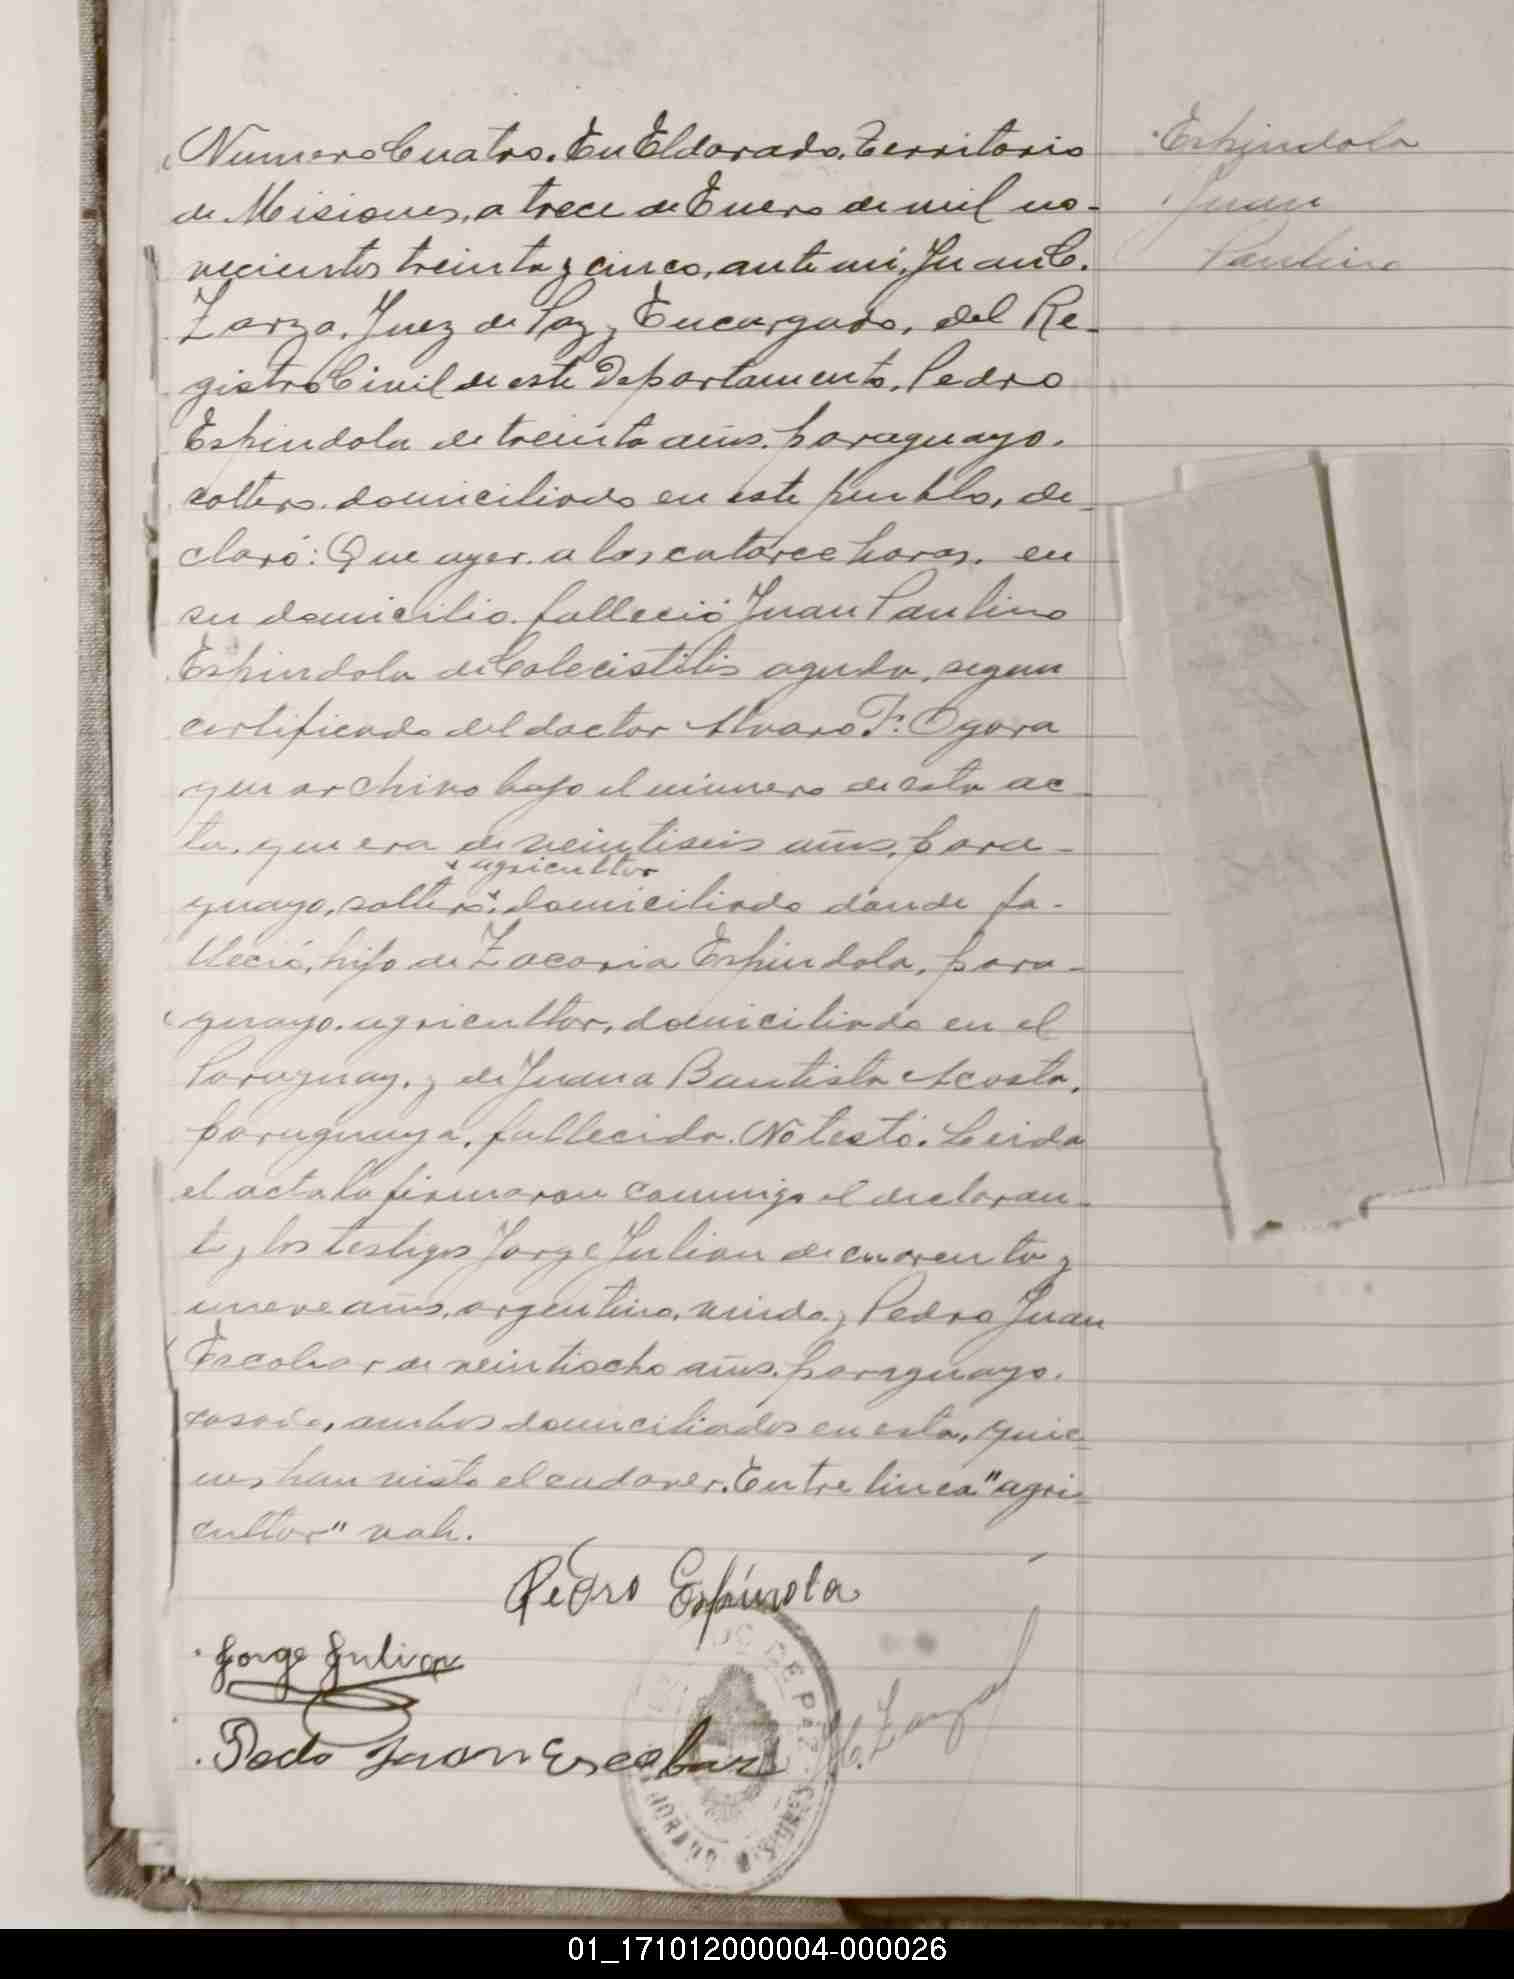 Espindola
Juan
Paulino
Numero Cuatro. En Eldorado, Territorio
de Misiones, a trece de Enero de mil no-
vecientos treinta y cinco, ante mi, Juan C.
Zarza, Juez de Paz y Encargado, del Re-
gistro Civil de este Departamento, Pedro
Espindola de treinta años, paraguayo,
soltero, domiciliado en este pueblo, de-
claró: Que ayer, a las catorce horas, en
su domicilio, falleció Juan Paulino
Espindola de Colecistitis aguda, segun
certificado del doctor Alvaro F. Ogara
que archivo bajo el número de esta ac-
ta, que era de veintiseis años, para-
agricultor
guayo, soltero, domiciliado donde fa-
lleció, hijo de Zacaria Espindola, para-
guayo, agricultor, domiciliado en el
Paraguay, y de Juana Bautista Acosta,
paraguaya, fallecida. No testó. Leida
el acta la firmaron conmigo el declaran-
te y los testigos Jorge Julian de cuarenta y
nueve años, argentino, viudo y Pedro Juan
Escobar de veintiocho años, paraguayo,
casado, ambos domiciliados en esta, quie-
nes han visto el cadaver. Entre linea "agri-
cultor" vale.
Pedro Espínola
Jorge Julian
Pedo Juan Escobar
C. Zarza
DE PAZ
01_171012000004-000026